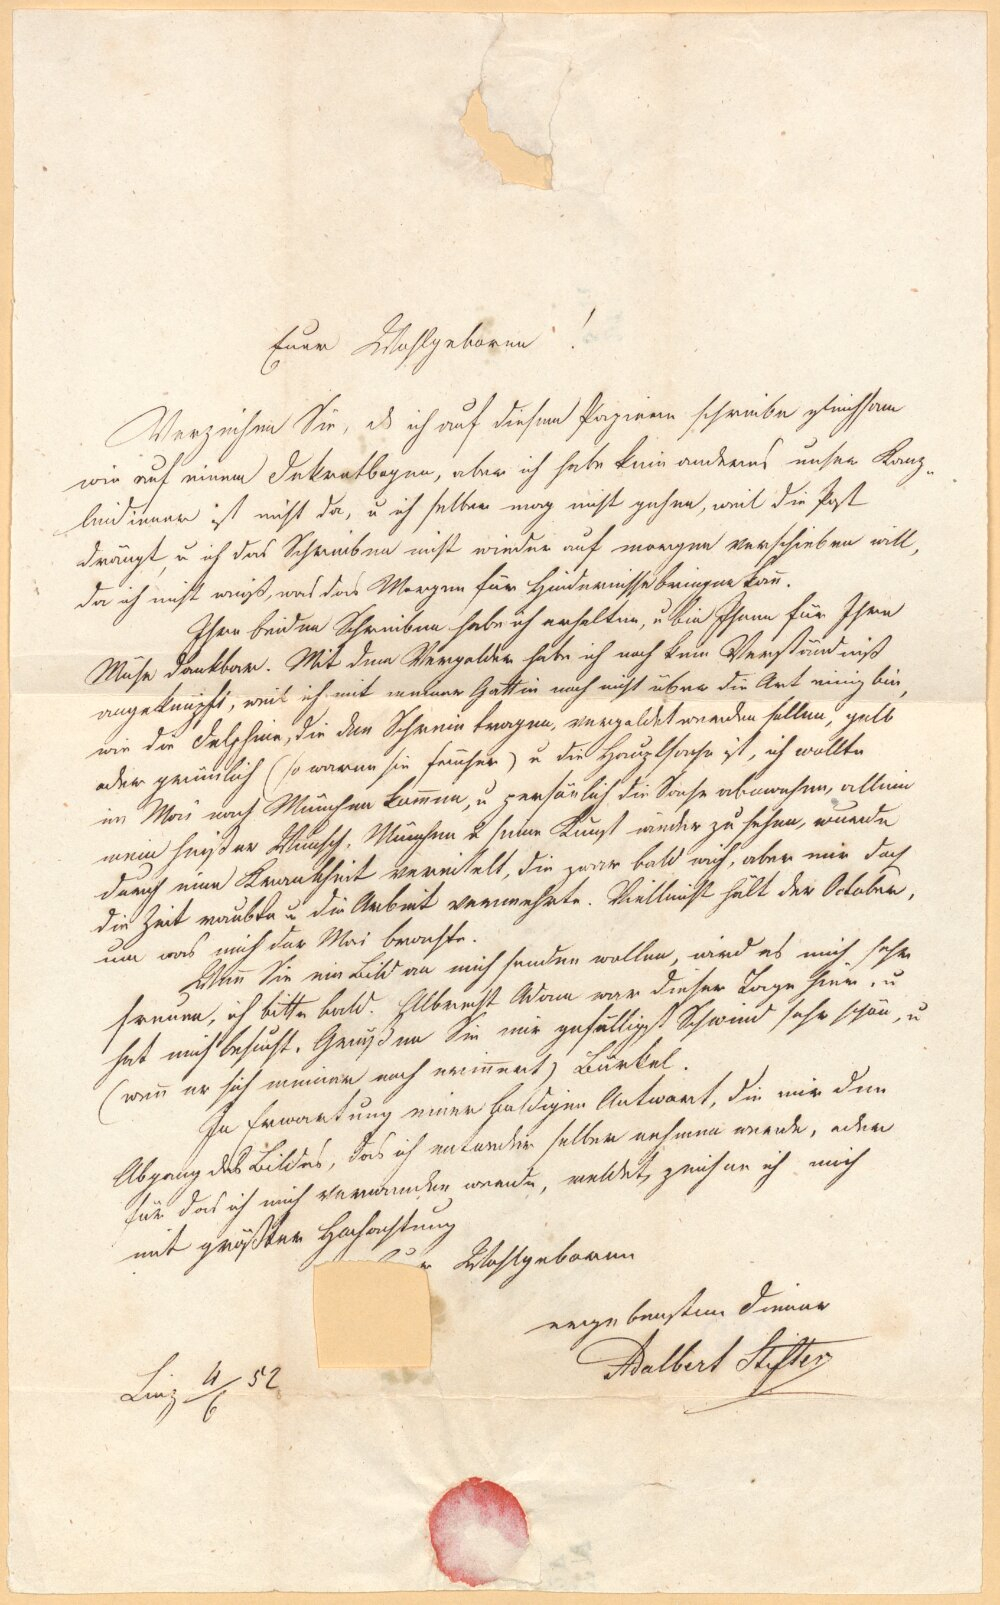 Euer Wohlgeboren!
Verzeihen Sie, daß ich auf diesem Papiere schreibe gleichsam
wie auf einem Dekretbogen, aber ich habe kein anderes unser Kanz-
leidiener ist nicht da, u ich selber mag nicht gehen, weil die Post
drängt, u ich das Schreiben nicht wieder auf morgen verschieben will,
da ich nicht weiß, was das Morgen für Hindernisse bringen kan̄.
Ihre beiden Schreiben habe ich erhalten, u bin Ihnen für Ihre
Mühe dankbar. Mit dem Vergolder habe ich noch kein Verständniß
angeknüpft, weil ich mit meiner Gattin noch nicht über die Art einig bin,
wie die Delphine, die den Schrein tragen, vergoldet werden sollen, gelb
oder grünlich (so waren sie früher) u die Hauptsache ist, ich wollte
im Mai nach München kom̄en, u persönlich die Sache abmachen, allein
mein heißer Wunsch, München u seine Kunst wieder zu sehen, wurde
durch eine Krankheit vereitelt, die zwar bald wich, aber mir doch
die Zeit raubte u die Arbeit vermehrte. Vielleicht hält der October,
um was mich der Mai brachte.
Wen̄ Sie ein Bild an mich senden wollen, wird es mich sehr
freuen, ich bitte bald. Albrecht Adam war dieser Tage hier, u
hat mich besucht. Grüßen Sie mir gefälligst Schwind sehr schön, u
(wen̄ er sich meiner noch erin̄ert) Bürkel.
In Erwartung einer baldigen Antwort, die mir den
Abgang des Bildes, das ich entweder selber nehmen werde, oder
für das ich mich verwenden werde, meldet, zeichne ich mich
mit größter Hochachtung
Wohlgeboren
ergebenster Diener
Adalbert Stifter
Linz 4/6 52